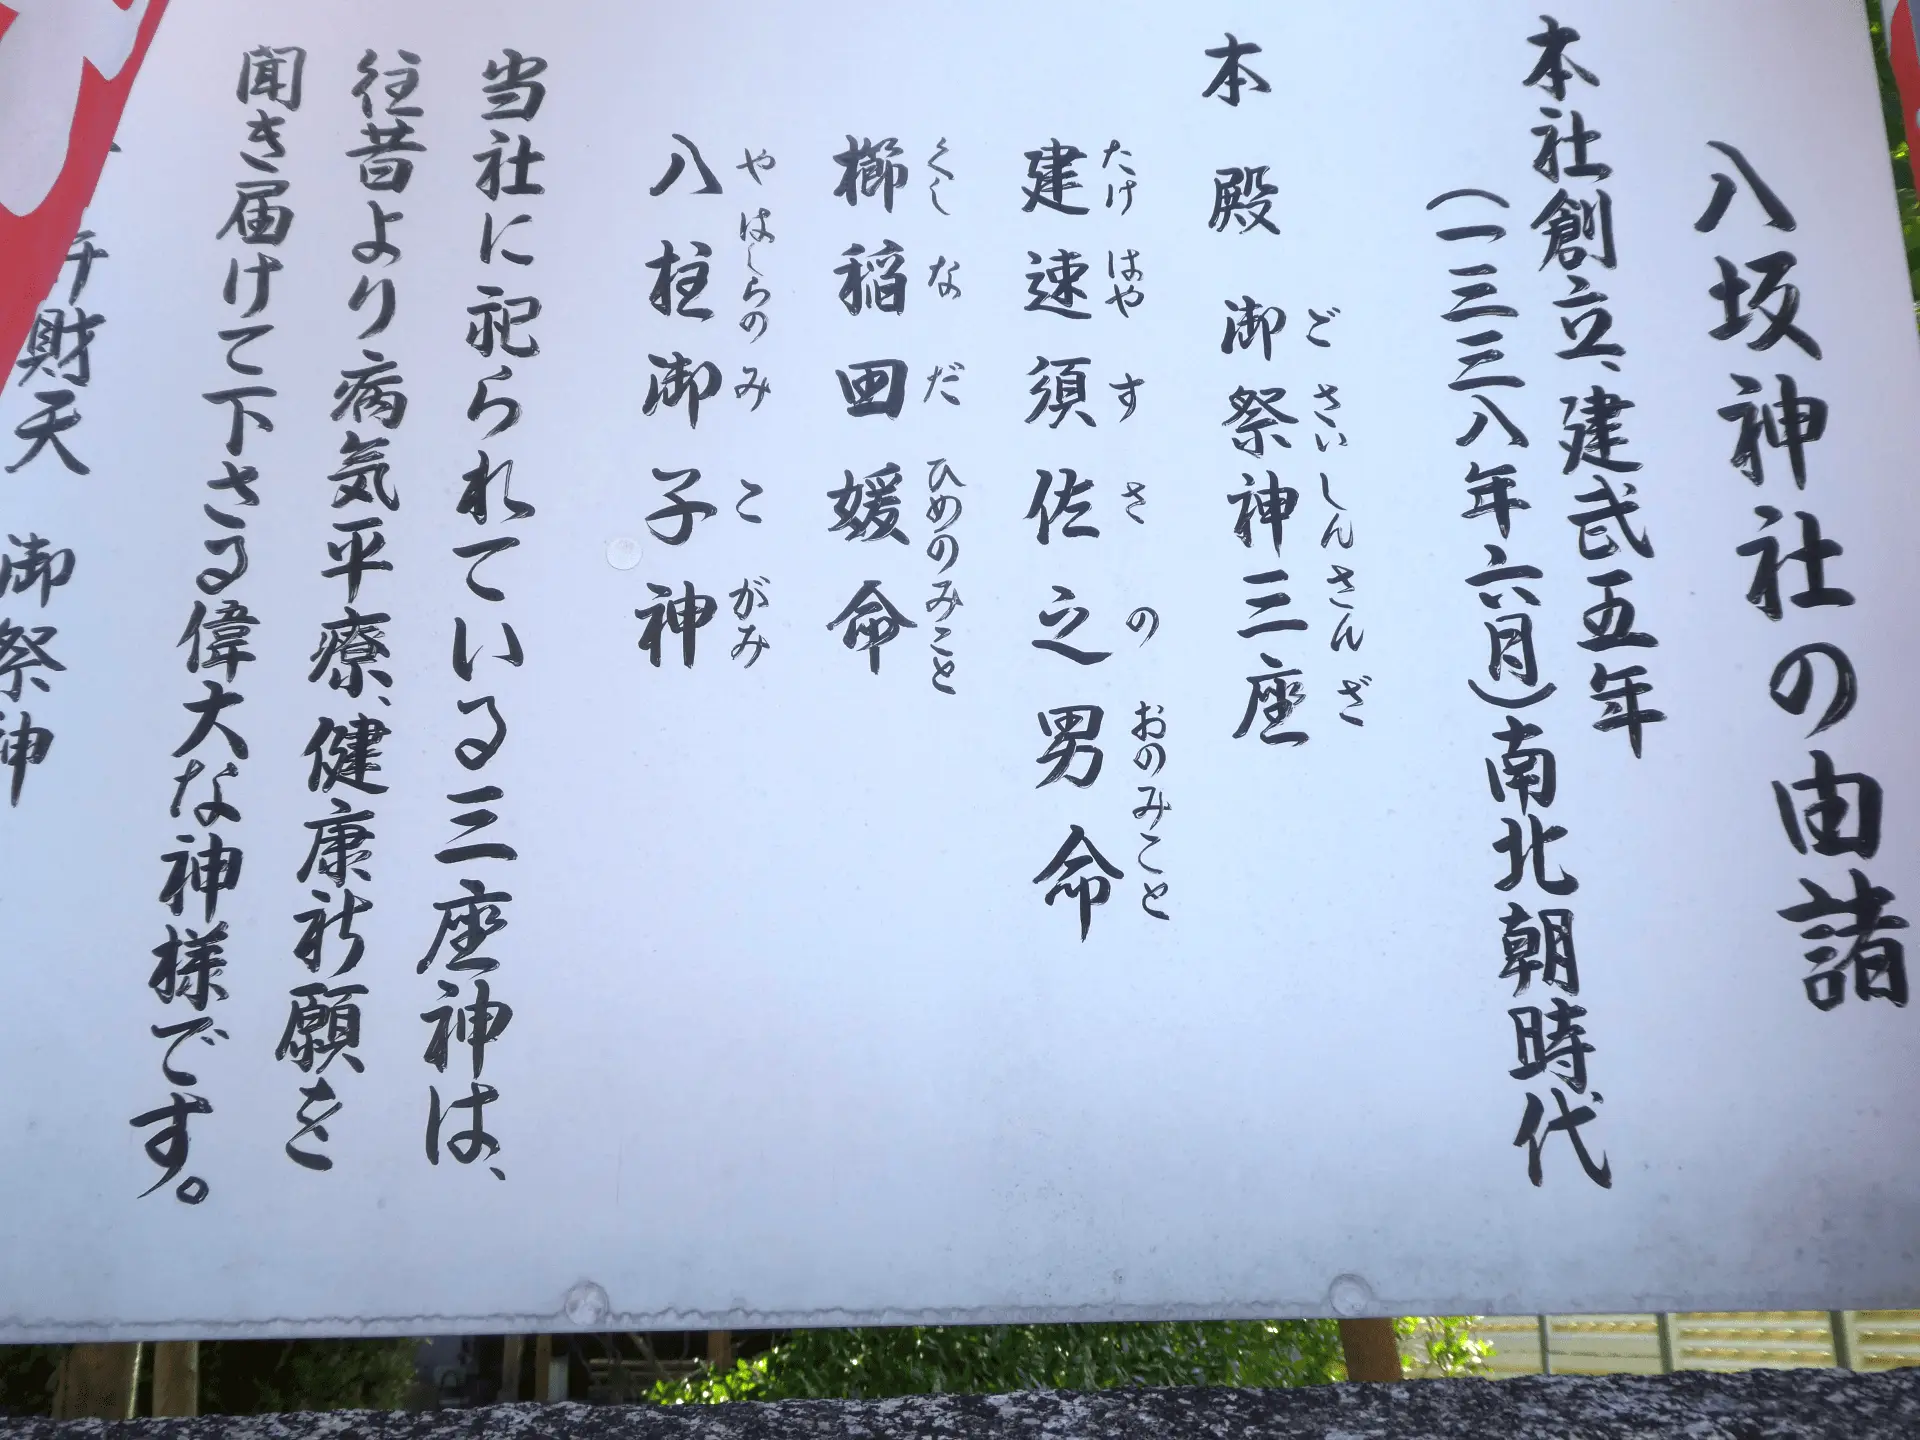 八坂神社の由諸
本社創立、建武五年
(一三三八年六月)南北朝時代
本殿 御祭神三座
ごさいしんさんざ
建速須佐之男命
たけはやすさのおのみこと
櫛稲田媛命
くしなだひめのみこと
八柱御子神
やはしらのみこがみ
当社に祀られている三座神は、
往昔より病気平療、健康祈願を
聞き届けて下さる偉大な神様です。
財天 御祭神